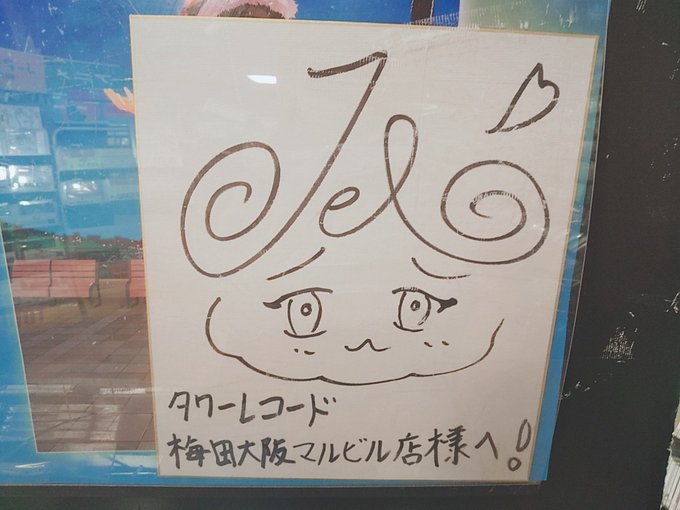 Jel
タワーレコード
梅田大阪マルビル店様へ!